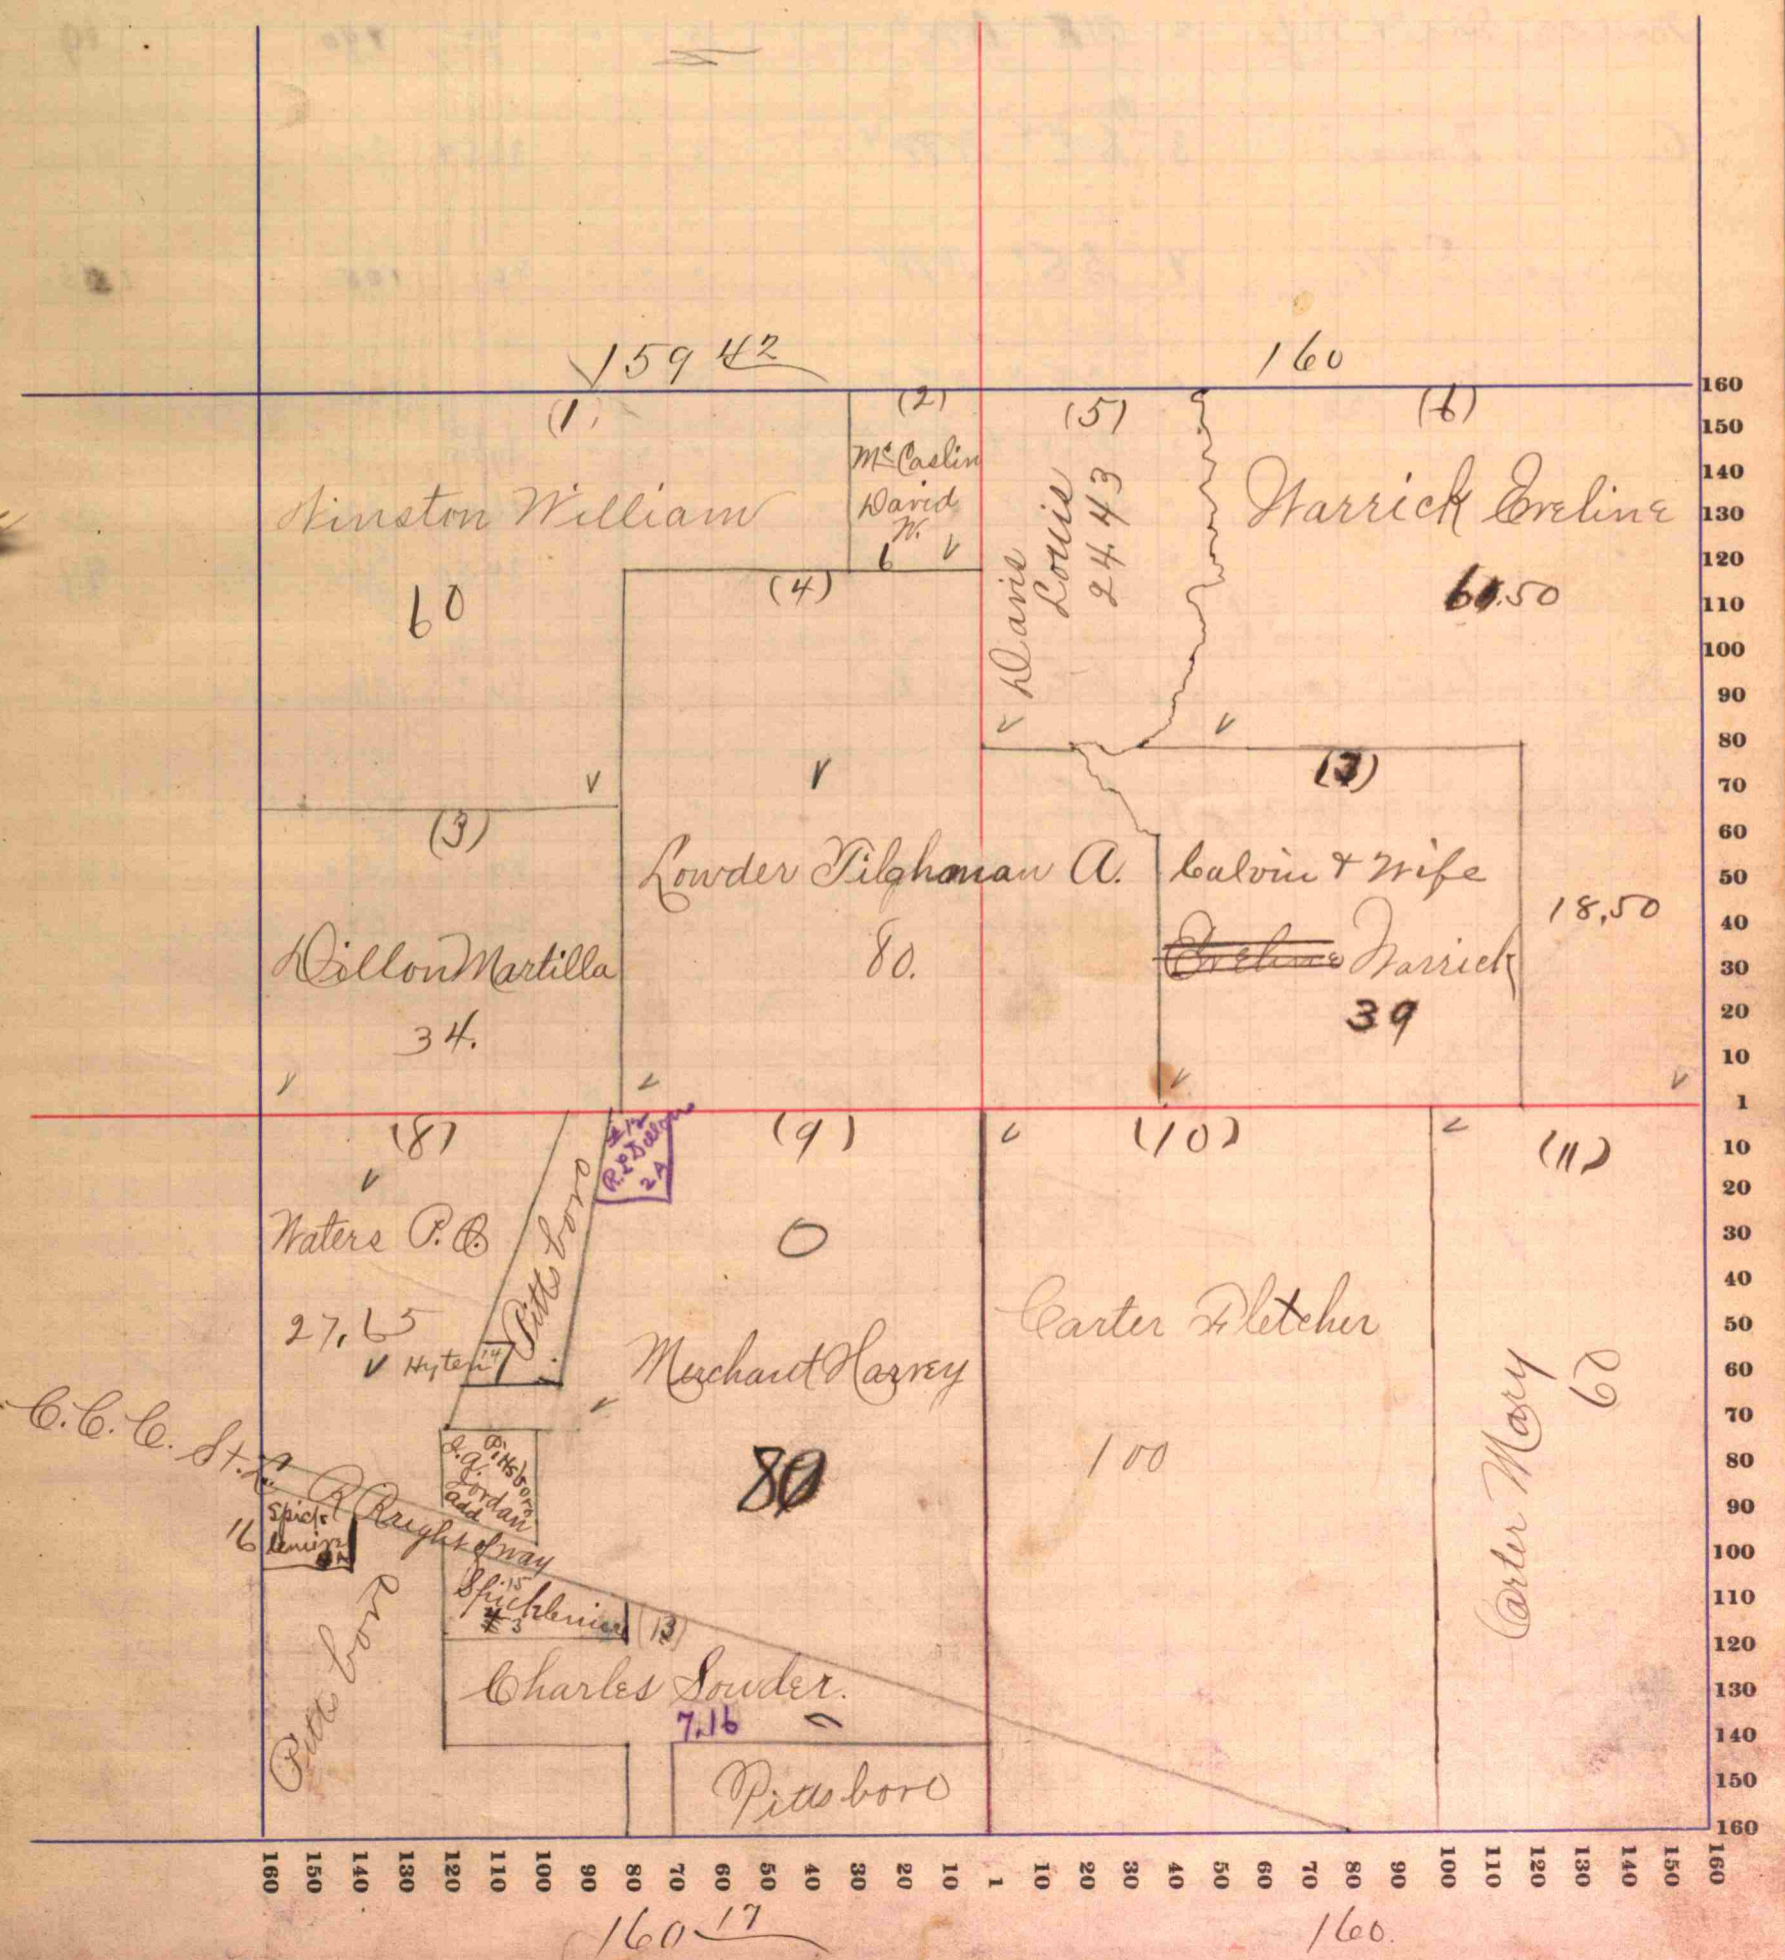 159 42
160
(1)
Winston William
60
(2)
McCaslin
David
W.
6
(5)
Davis
Louis
24.43
(6)
Warrick Eveline
.50
(4)
Lowder Tilghman A.
80.
(3)
Dillon Martilla
34.
(7)
Calvin & Wife
Eveline Warrick
39
18,50
(8)
Waters P. B.
27,65
Hyten 14
Pittsboro
#12
R.L. Dillon
2 A
(9)
0
Merchant Harvey
80
(10)
Carter Fletcher
100
(11)
Carter Mary
60
C.C.C. St. L.
R R right of way
J. A. Jordan add
Pittsboro
16
Spick
lemire
15
Spicklemire
3
(13)
Charles Lowder.
7.16
Pittsboro
Pittsboro
160
150
140
130
120
110
100
90
80
70
60
50
40
30
20
10
1
10
20
30
40
50
60
70
80
90
100
110
120
130
140
150
160
160 150 140 130 120 110 100 90 80 70 60 50 40 30 20 10 1 10 20 30 40 50 60 70 80 90 100 110 120 130 140 150 160
160 17
160.